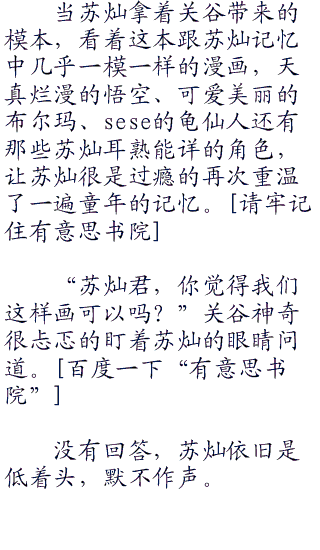 当苏灿拿着关谷带来的
模本，看着这本跟苏灿记忆
中几乎一模一样的漫画，天
真烂漫的悟空、可爱美丽的
布尔玛、sese的龟仙人还有
那些苏灿耳熟能详的角色，
让苏灿很是过瘾的再次重温
了一遍童年的记忆。[请牢记
住有意思书院]
“苏灿君，你觉得我们
这样画可以吗？”关谷神奇
很忐忑的盯着苏灿的眼睛问
道。[百度一下“有意思书
院”]
没有回答，苏灿依旧是
低着头，默不作声。